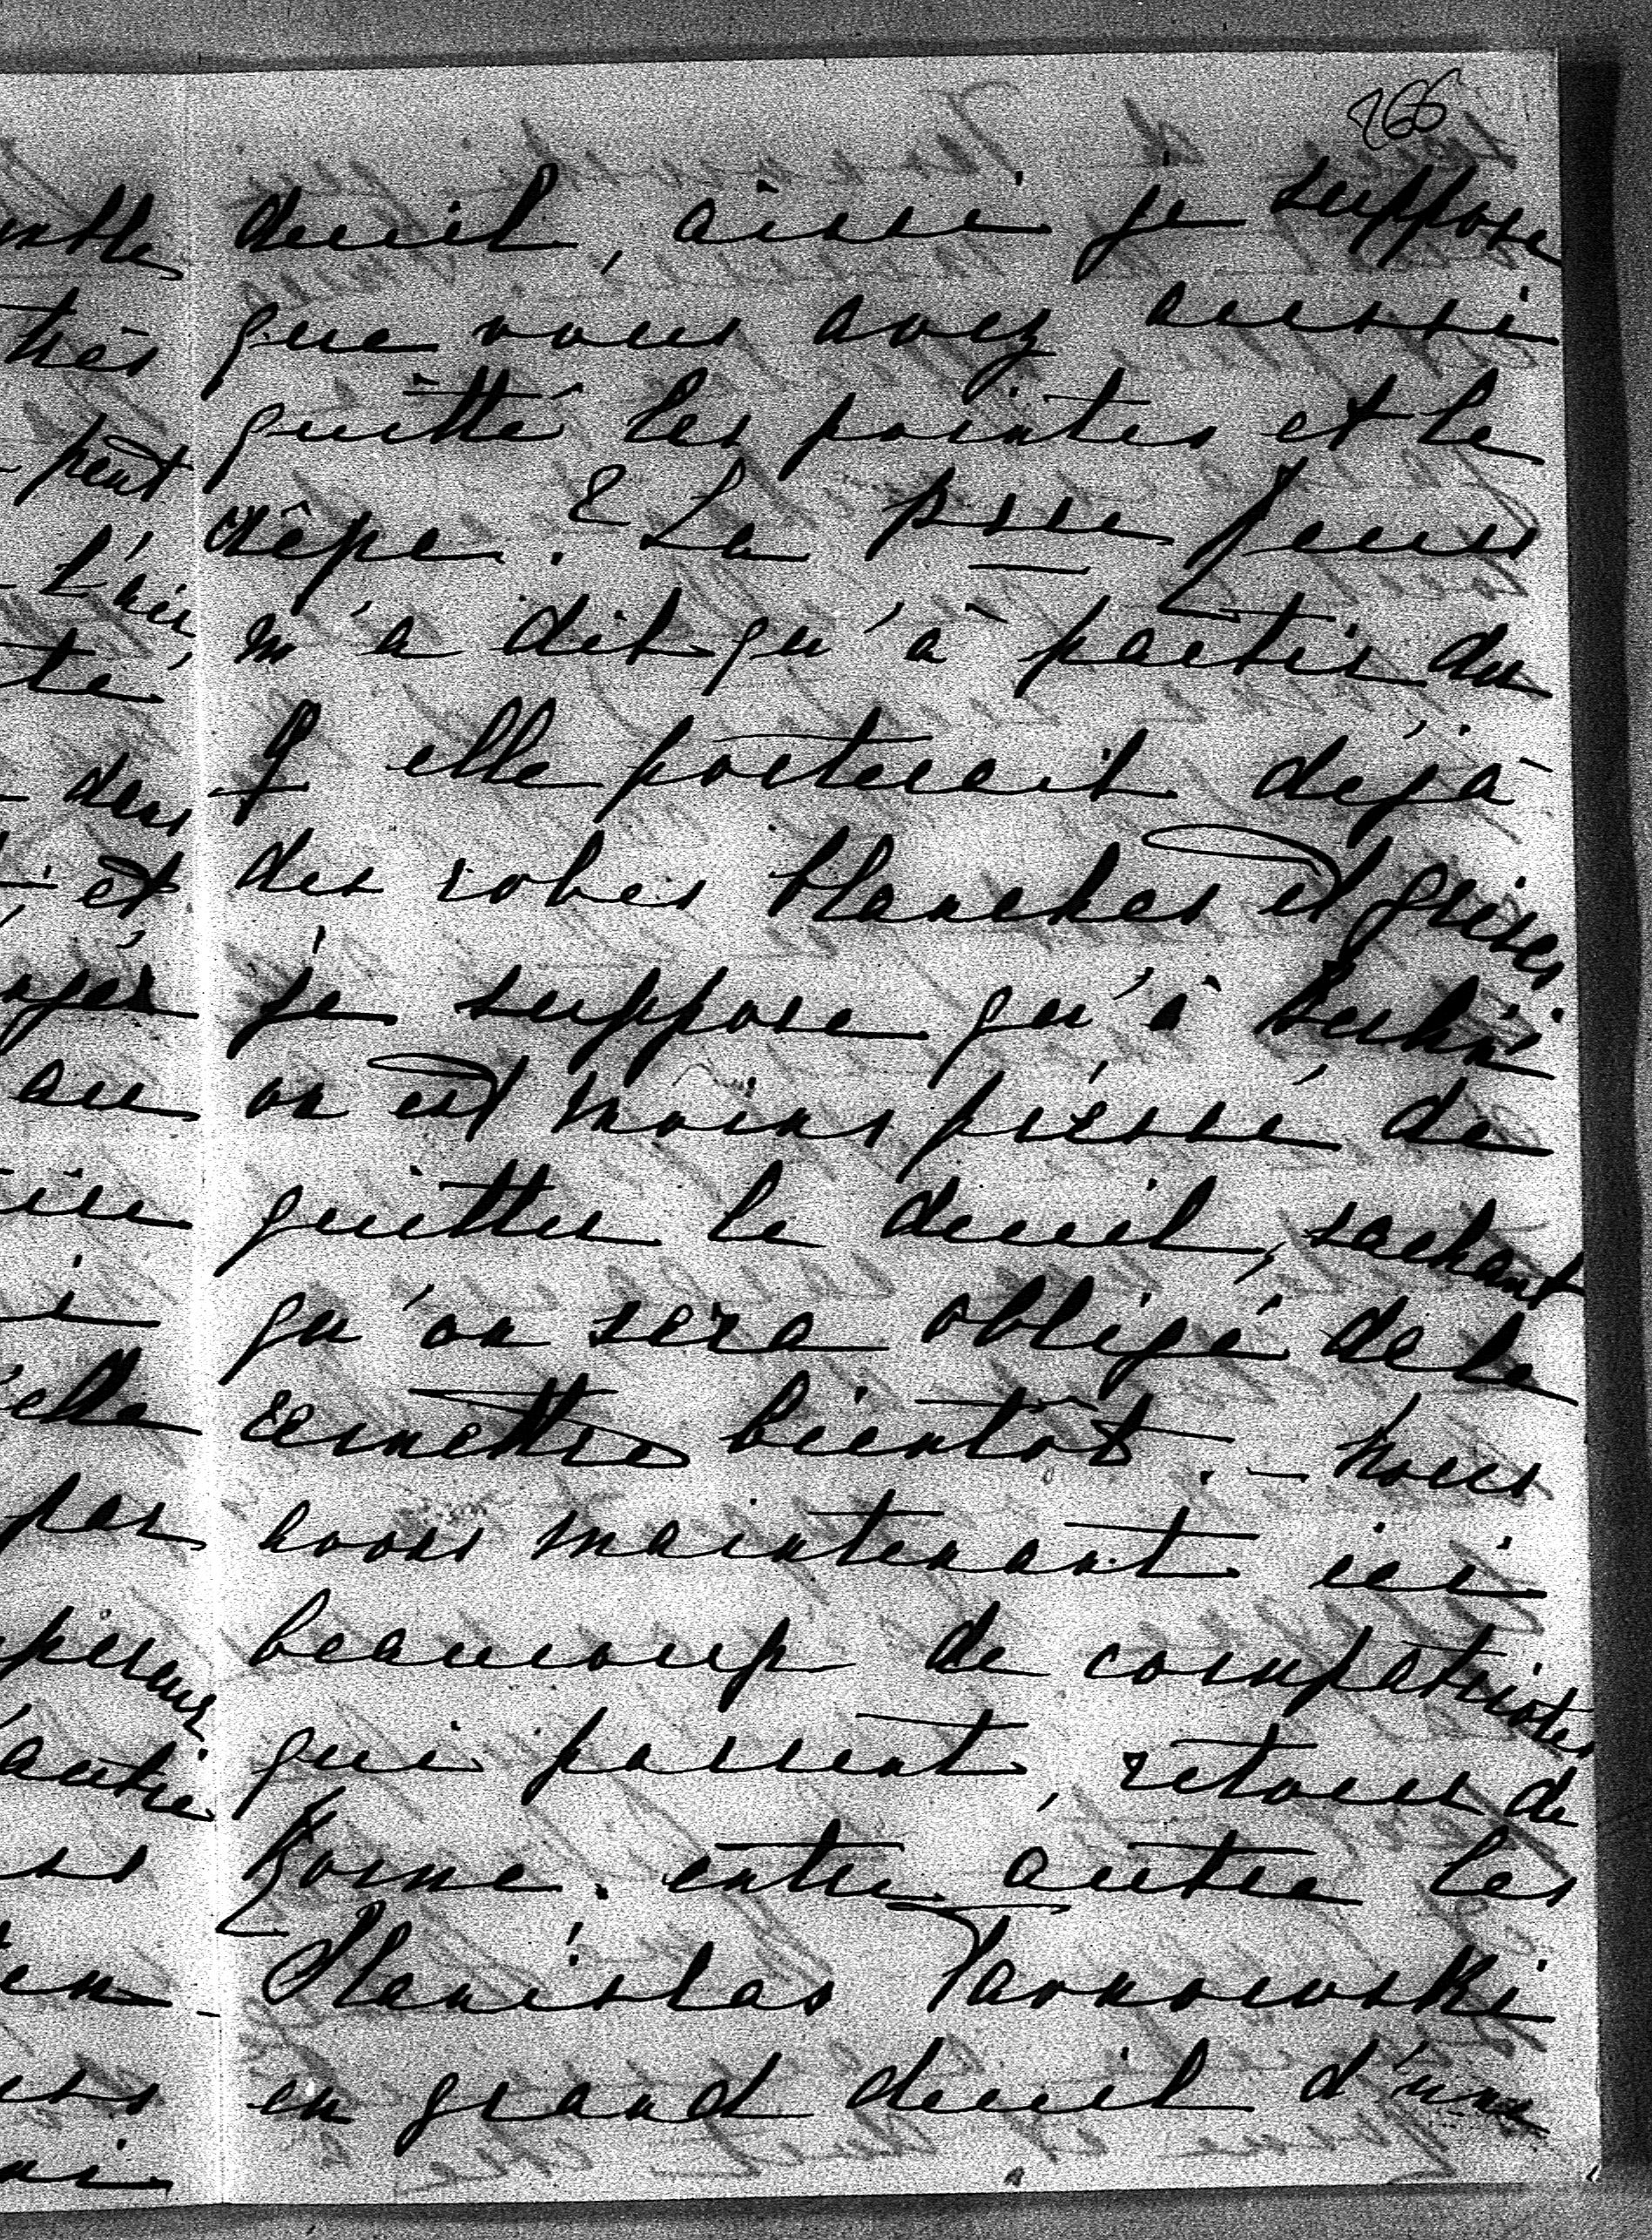 266
deuil, aissi je suppose
que vous avez aussi
quitté les pointes et le
crêpe. La Psse
m'a dit qu'à partir du
elle porterait déjà
des robes blanches et grises
je suppose qu'à Berlin
on est moins pressé de
quitter le deuil, sachant
qu'on sera obligé de le
remettre bientôt. – Nous
avons maintenant ici
beaucoup de compatriotes
qui passent, retour de
Rome. entre autre les
Stanislas Tarnowski
en grand deuil d'une